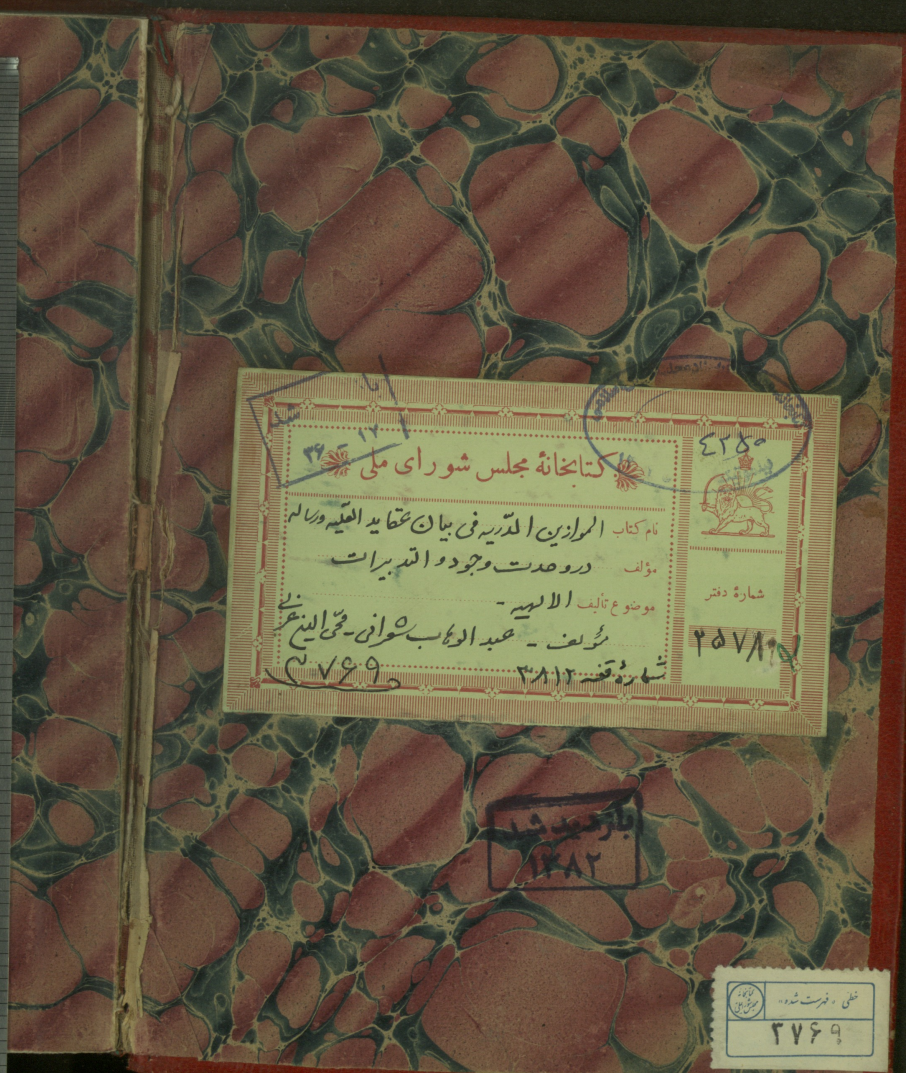 کتابخانهٔ مجلس شورای ملی
نام کتاب الموازین الدریه فی بیان عقاید العلیه ورساله
مؤلف در وحدت وجود و التدبیرات
موضوع تألیف الالهیه -
مؤلف - عبد الوهاب شعرانی - محی الدین عربی
شمارهٔ قفسه ۳۸۱۲
۳۷۶۹
۱۷ - ۳۶
٤٢٥٠
شمارهٔ دفتر
۲۵۷۸۹
بازدید شد
۱۳۸۲
خطی - فهرست شده
۳۷۶۹